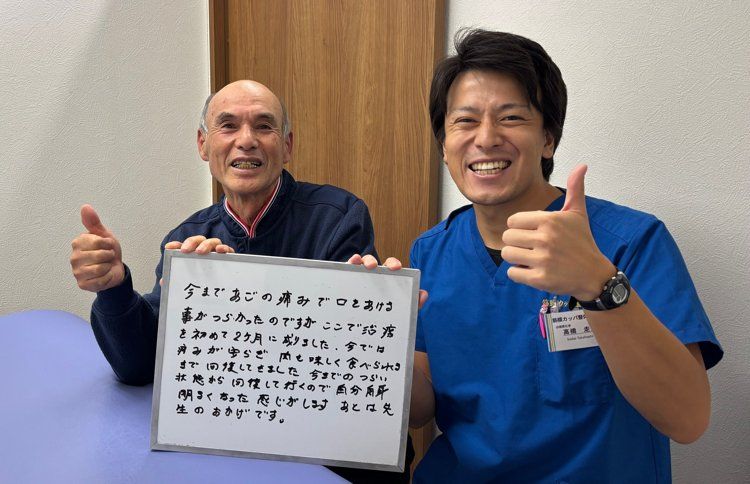 今まであごの痛みで口をあける
事がつらかったのですが ここで治療
を初めて2ヶ月に成りました. 今では
痛みが安らぎ 肉も味しく食べられる
まで回復してきました 今までのつらい
状態から回復して行くので自分自身
明るくなった感じがします あとは先
生のおかげです。
高橋